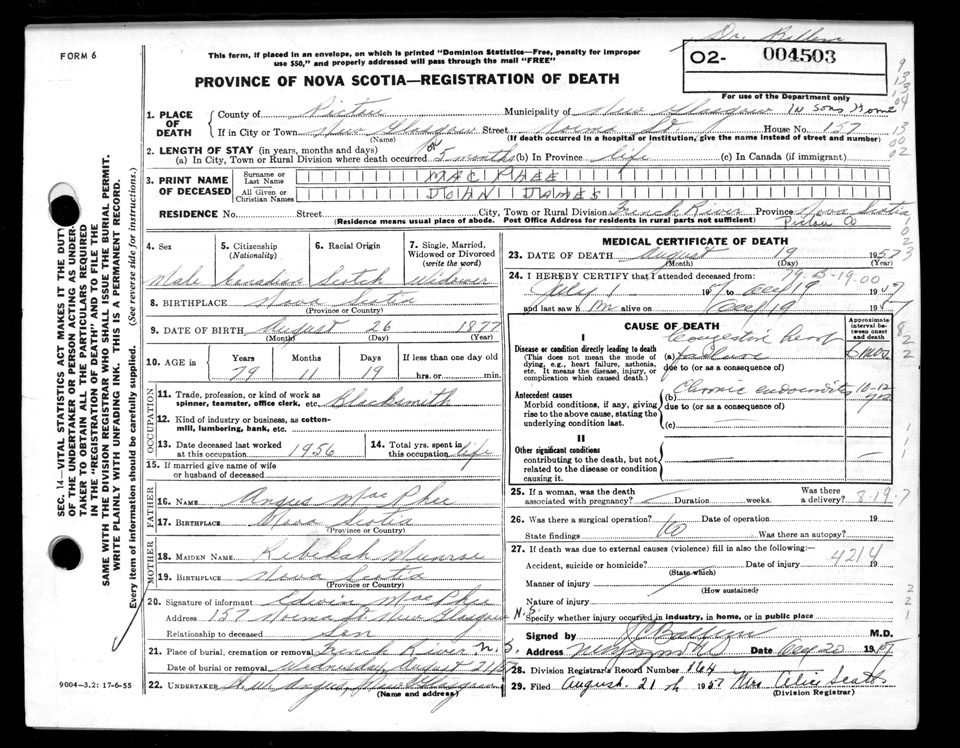 FORM 6
This form, if placed in an envelope, on which is printed "Dominion Statistics—Free, penalty for improper
use $50," and properly addressed will pass through the mail "FREE"
PROVINCE OF NOVA SCOTIA—REGISTRATION OF DEATH
02- 004503
For use of the Department only
1. PLACE OF DEATH
County of Pictou Municipality of New Glasgow IN SONS Home
If in City or Town New Glasgow Street St House No. 157
(Name) (If death occurred in a hospital or institution, give the name instead of street and number)
2. LENGTH OF STAY (in years, months and days)
(a) In City, Town or Rural Division where death occurred 5 months (b) In Province life (c) In Canada (if immigrant)
3. PRINT NAME OF DECEASED
Surname or Last Name MAC PHEE
All Given or Christian Names JOHN JAMES
RESIDENCE No. Street City, Town or Rural Division French River Province Nova Scotia
(Residence means usual place of abode. Post Office Address for residents in rural parts not sufficient) Pictou Co
4. Sex
Male
5. Citizenship (Nationality)
Canadian
6. Racial Origin
Scotch
7. Single, Married, Widowed or Divorced (write the word)
Widower
8. BIRTHPLACE Nova Scotia
(Province or Country)
9. DATE OF BIRTH August 26 1877
(Month) (Day) (Year)
10. AGE in Years Months Days If less than one day old
79 11 19 hrs. or min.
OCCUPATION
11. Trade, profession, or kind of work as spinner, teamster, office clerk, etc. Blacksmith
12. Kind of industry or business, as cotton-mill, lumbering, bank, etc.
13. Date deceased last worked at this occupation 1956
14. Total yrs. spent in this occupation life
15. If married give name of wife or husband of deceased
FATHER
16. NAME Angus MacPhee
17. BIRTHPLACE Nova Scotia
(Province or Country)
MOTHER
18. MAIDEN NAME Rebekah Munroe
19. BIRTHPLACE Nova Scotia
(Province or Country)
20. Signature of informant Edwin MacPhee
Address 157 St New Glasgow N.S.
Relationship to deceased Son
21. Place of burial, cremation or removal French River N.S.
Date of burial or removal Wednesday, August 21/57
22. UNDERTAKER Angus, New Glasgow
(Name and address)
9004-3.2: 17-6-55
MEDICAL CERTIFICATE OF DEATH
23. DATE OF DEATH August 19 1957
(Month) (Day) (Year)
24. I HEREBY CERTIFY that I attended deceased from:
July 1 1957 to Aug 19 1957
and last saw him alive on Aug 19 1957
CAUSE OF DEATH
Approximate interval between onset and death
I
Disease or condition directly leading to death
(This does not mean the mode of dying, e.g., heart failure, asthenia, etc. It means the disease, injury, or complication which caused death.)
(a) Congestive heart failure 6 mos
due to (or as a consequence of)
Antecedent causes
Morbid conditions, if any, giving rise to the above cause, stating the underlying condition last.
(b) Chronic 10-12 yrs
due to (or as a consequence of)
(c)
II
Other significant conditions
contributing to the death, but not related to the disease or condition causing it.
25. If a woman, was the death associated with pregnancy? Duration weeks. Was there a delivery? 8-19-7
26. Was there a surgical operation? No Date of operation 19
State findings Was there an autopsy?
27. If death was due to external causes (violence) fill in also the following:
Accident, suicide or homicide? Date of injury 19
(State which) 4214
Manner of injury
(How sustained)
Nature of injury
Specify whether injury occurred in industry, in home, or in public place
Signed by M.D.
Address Date Aug 20 1957
28. Division Registrar's Record Number 164
29. Filed August 21 th 1957 Mrs Alice Scott
(Division Registrar)
SEC. 14—VITAL STATISTICS ACT MAKES IT THE DUTY
OF THE UNDERTAKER OR PERSON ACTING AS UNDER-
TAKER TO OBTAIN ALL THE PARTICULARS REQUIRED
IN THE "REGISTRATION OF DEATH" AND TO FILE THE
SAME WITH THE DIVISION REGISTRAR WHO SHALL ISSUE THE BURIAL PERMIT.
WRITE PLAINLY WITH UNFADING INK. THIS IS A PERMANENT RECORD.
Every item of information should be carefully supplied. (See reverse side for instructions.)